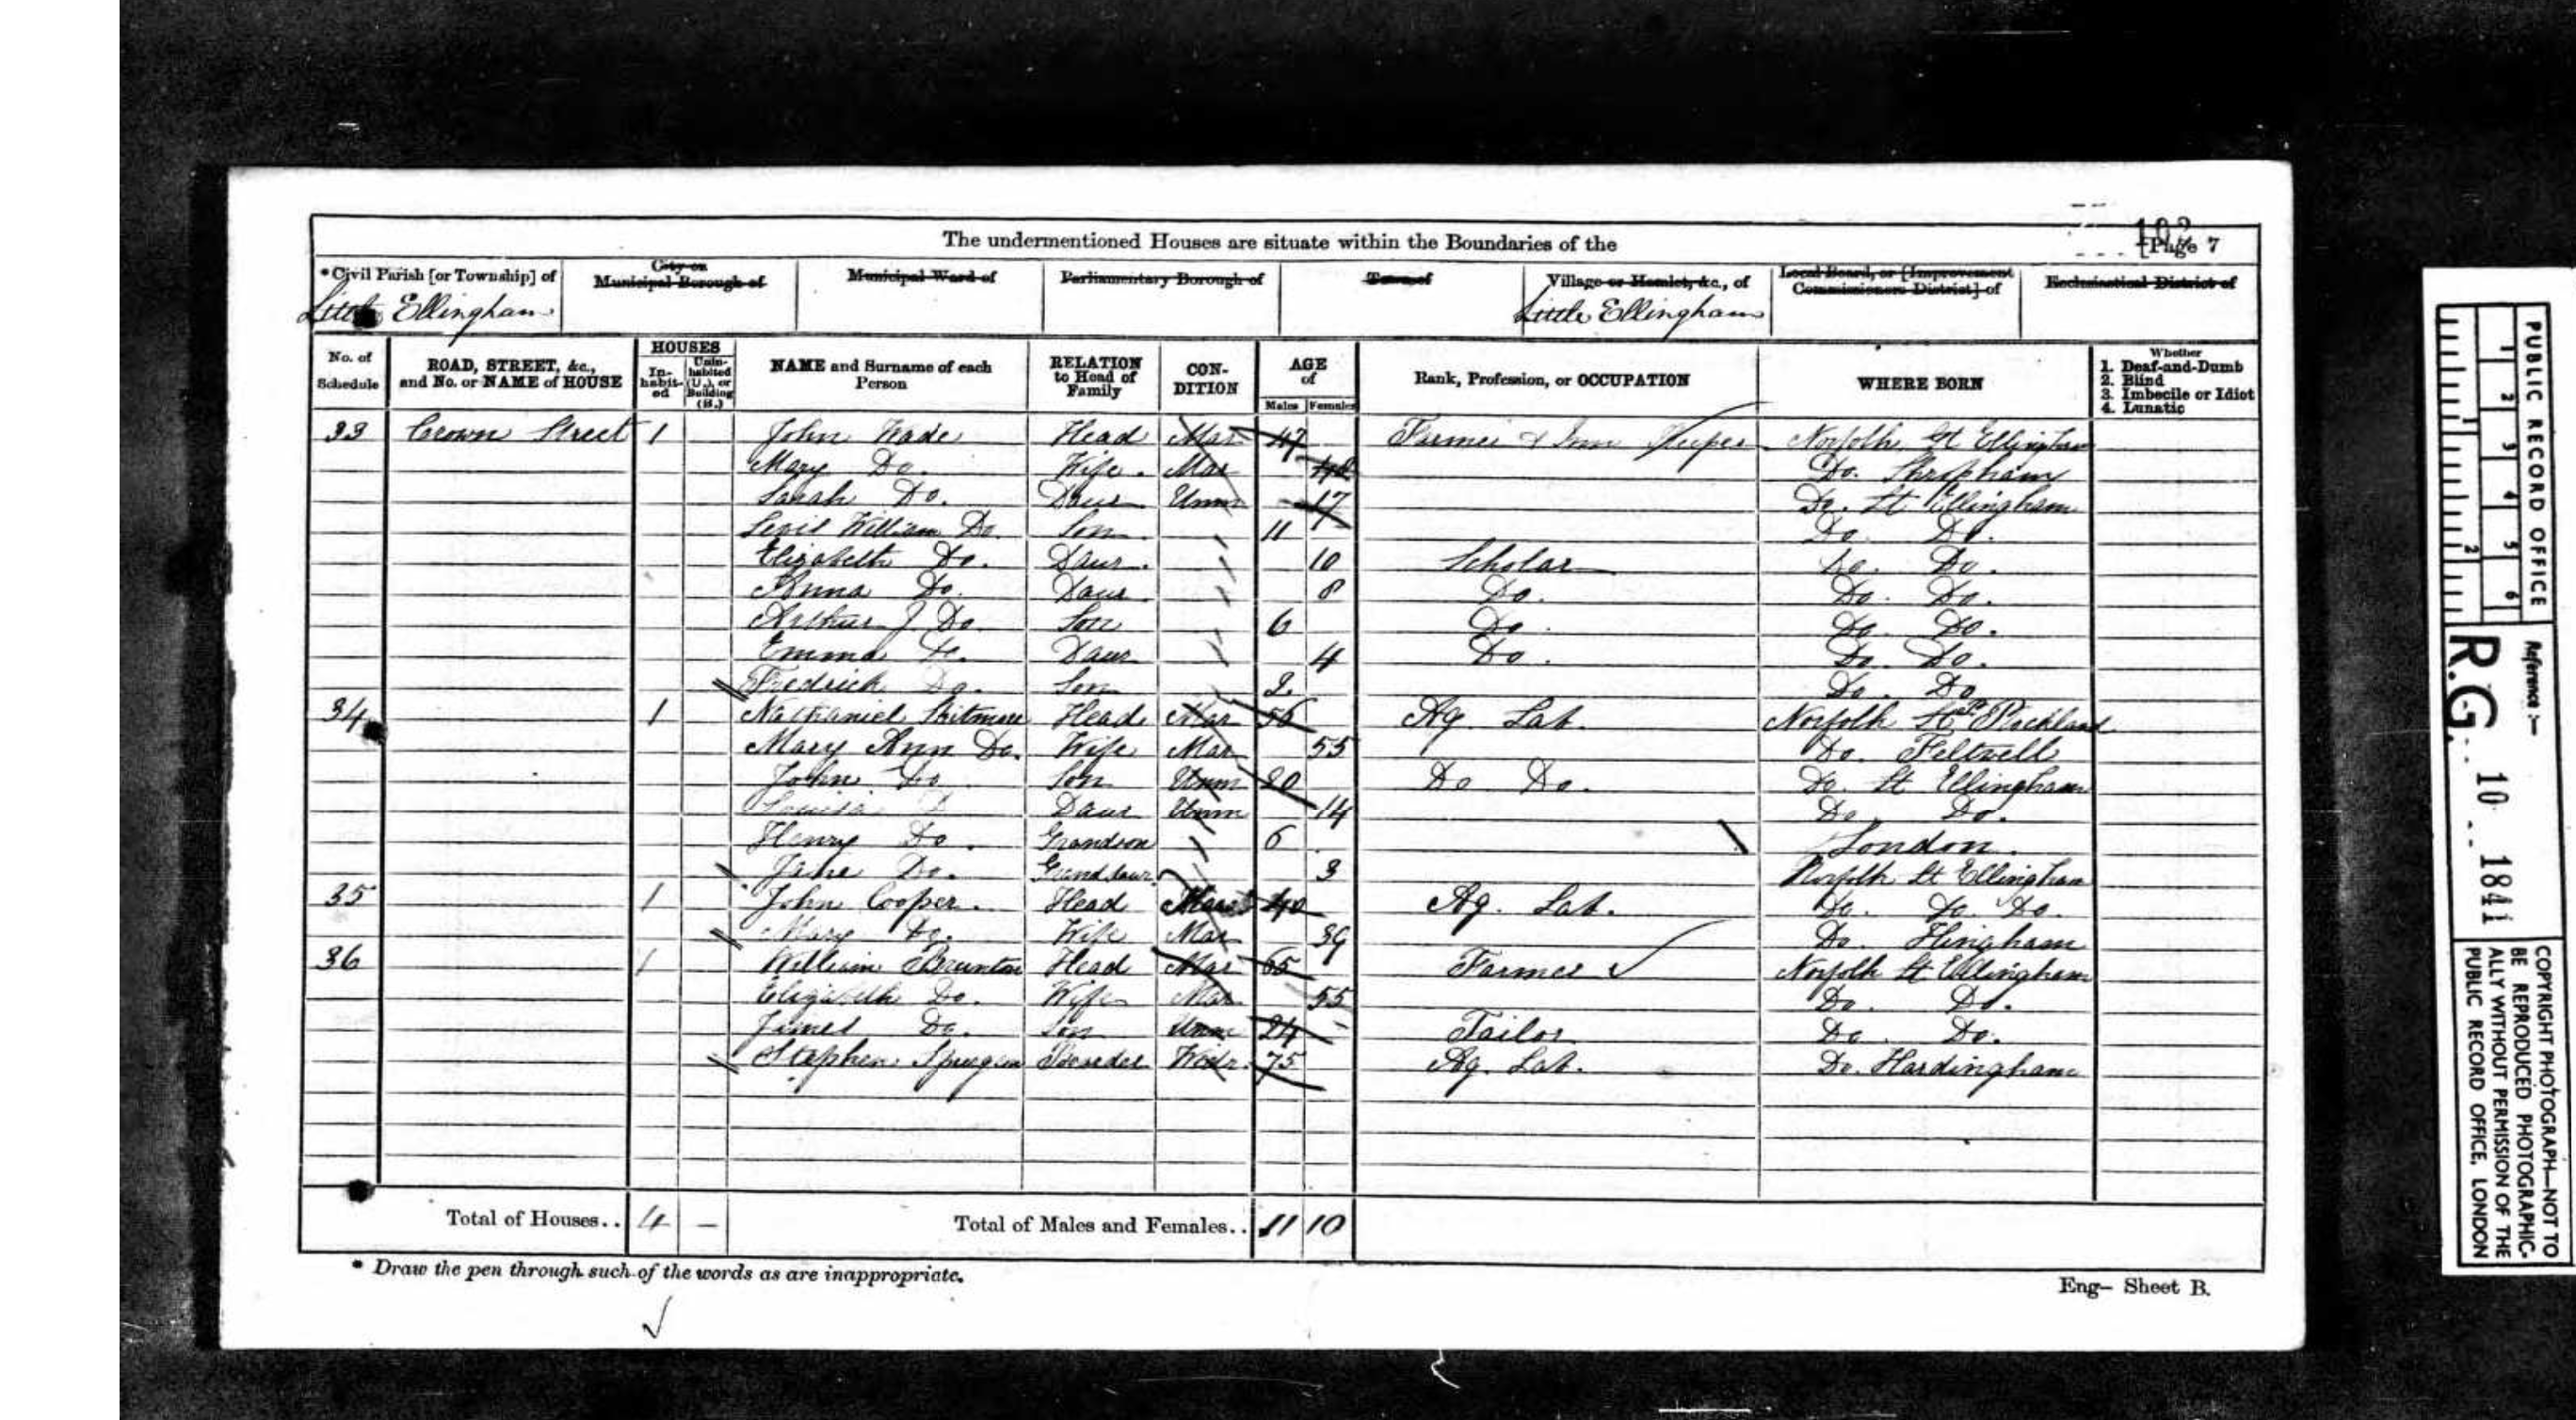 The undermentioned Houses are situate within the Boundaries of the
102
[Page 7
*Civil Parish [or Township] of
City or Municipal Borough of
Municipal Ward of
Parliamentary Borough of
Town of
Village or Hamlet, &c., of
Local Board, or [Improvement Commissioners District] of
Ecclesiastical District of
Little Ellingham
Little Ellingham
No. of Schedule
ROAD, STREET, &c., and No. or NAME of HOUSE
HOUSES
In-habit-ed
Unin-habited (U.), or Building (B.)
NAME and Surname of each Person
RELATION to Head of Family
CON-DITION
AGE of
Males
Females
Rank, Profession, or OCCUPATION
WHERE BORN
Whether
1. Deaf-and-Dumb
2. Blind
3. Imbecile or Idiot
4. Lunatic
33 Crown Street 1 John Wade Head Mar 47 Farmer & Inn Keeper Norfolk Gt Ellingham
Mary Do. Wife Mar Do. Shropham
Sarah Do. Daur Unm 17 Do. Lt Ellingham
William Do. Son 11 Do. Do.
Elizabeth Do. Daur. 10 Scholar Do. Do.
Anna Do. Daur. 8 Do. Do. Do.
Arthur J Do. Son 6 Do. Do. Do.
Emma Do. Daur 4 Do. Do. Do.
Fredrick Do. Son 2 Do. Do.
34 1 Nathaniel Head Mar 56 Ag. Lab. Norfolk Rockland
Mary Ann Do. Wife Mar 55 Do. Feltwell
John Do. Son Unm 20 Do Do. Do. Lt Ellingham
Louisa D Daur Unm 14 Do. Do.
Henry Do. Grandson 6 London.
Jane Do. Granddaur. 3 Norfolk Lt Ellingham
35 1 John Cooper. Head Mar 40 Ag. Lab. Do. Do. Do.
Mary Do. Wife Mar 39 Do. Hingham
36 1 William Brunton Head Mar 65 Farmer Norfolk Lt Ellingham
Elizabeth Do. Wife Mar 55 Do. Do.
James Do. Son Unm 24 Tailor Do. Do.
Stephen Spurgeon Boarder Widr. 75 Ag. Lab. Do. Hardingham
Total of Houses.. 4 —
Total of Males and Females.. 11 10
* Draw the pen through such of the words as are inappropriate.
Eng- Sheet B.
PUBLIC RECORD OFFICE
1 2 3 4 5 6
1 2
Reference :-
R.G. 10 1841
COPYRIGHT PHOTOGRAPH—NOT TO
BE REPRODUCED PHOTOGRAPHIC-
ALLY WITHOUT PERMISSION OF THE
PUBLIC RECORD OFFICE, LONDON